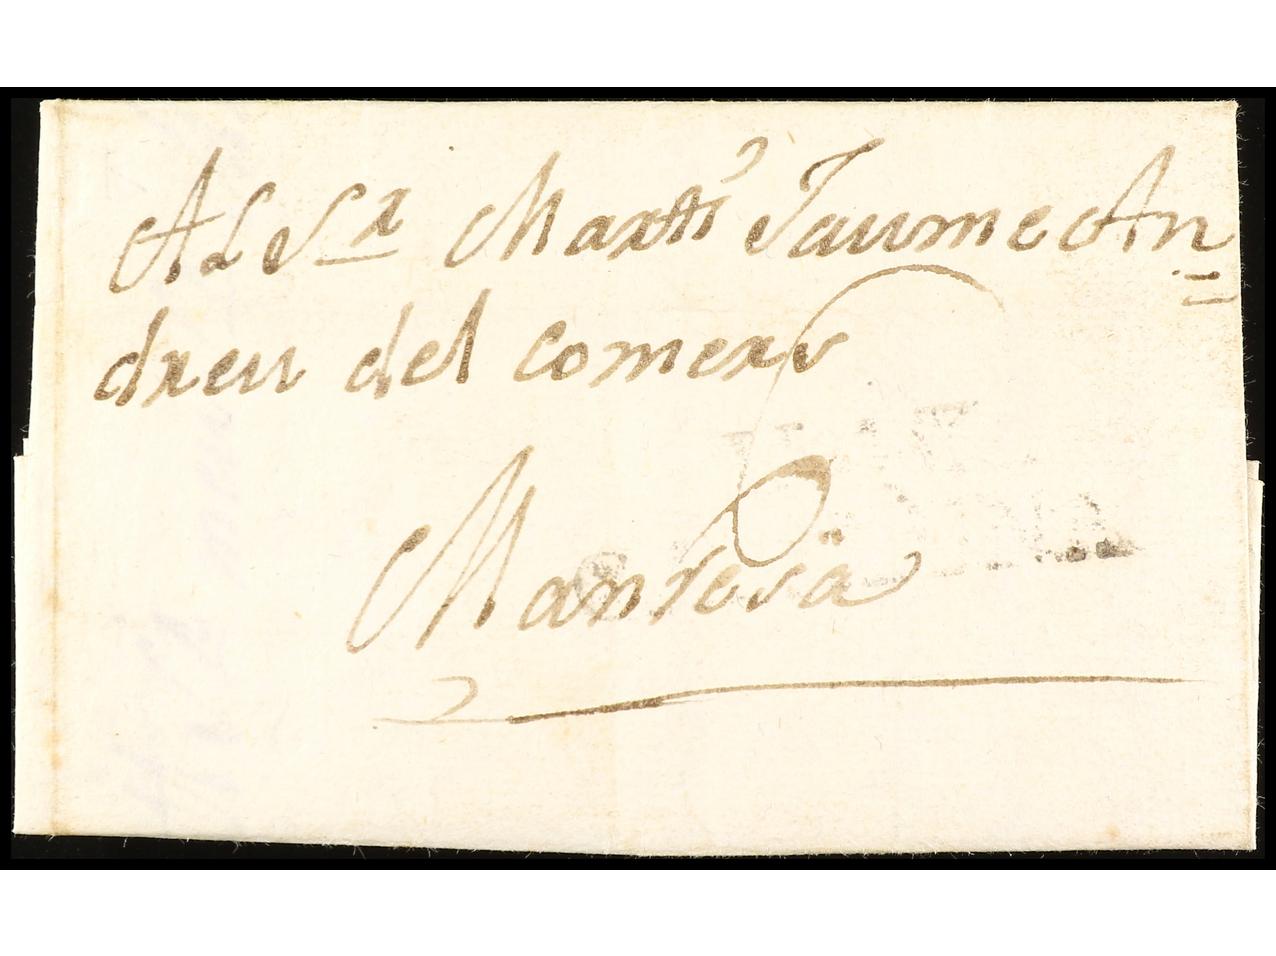 Al Sr Martí Jaume An=
dreu del comers
Manresa